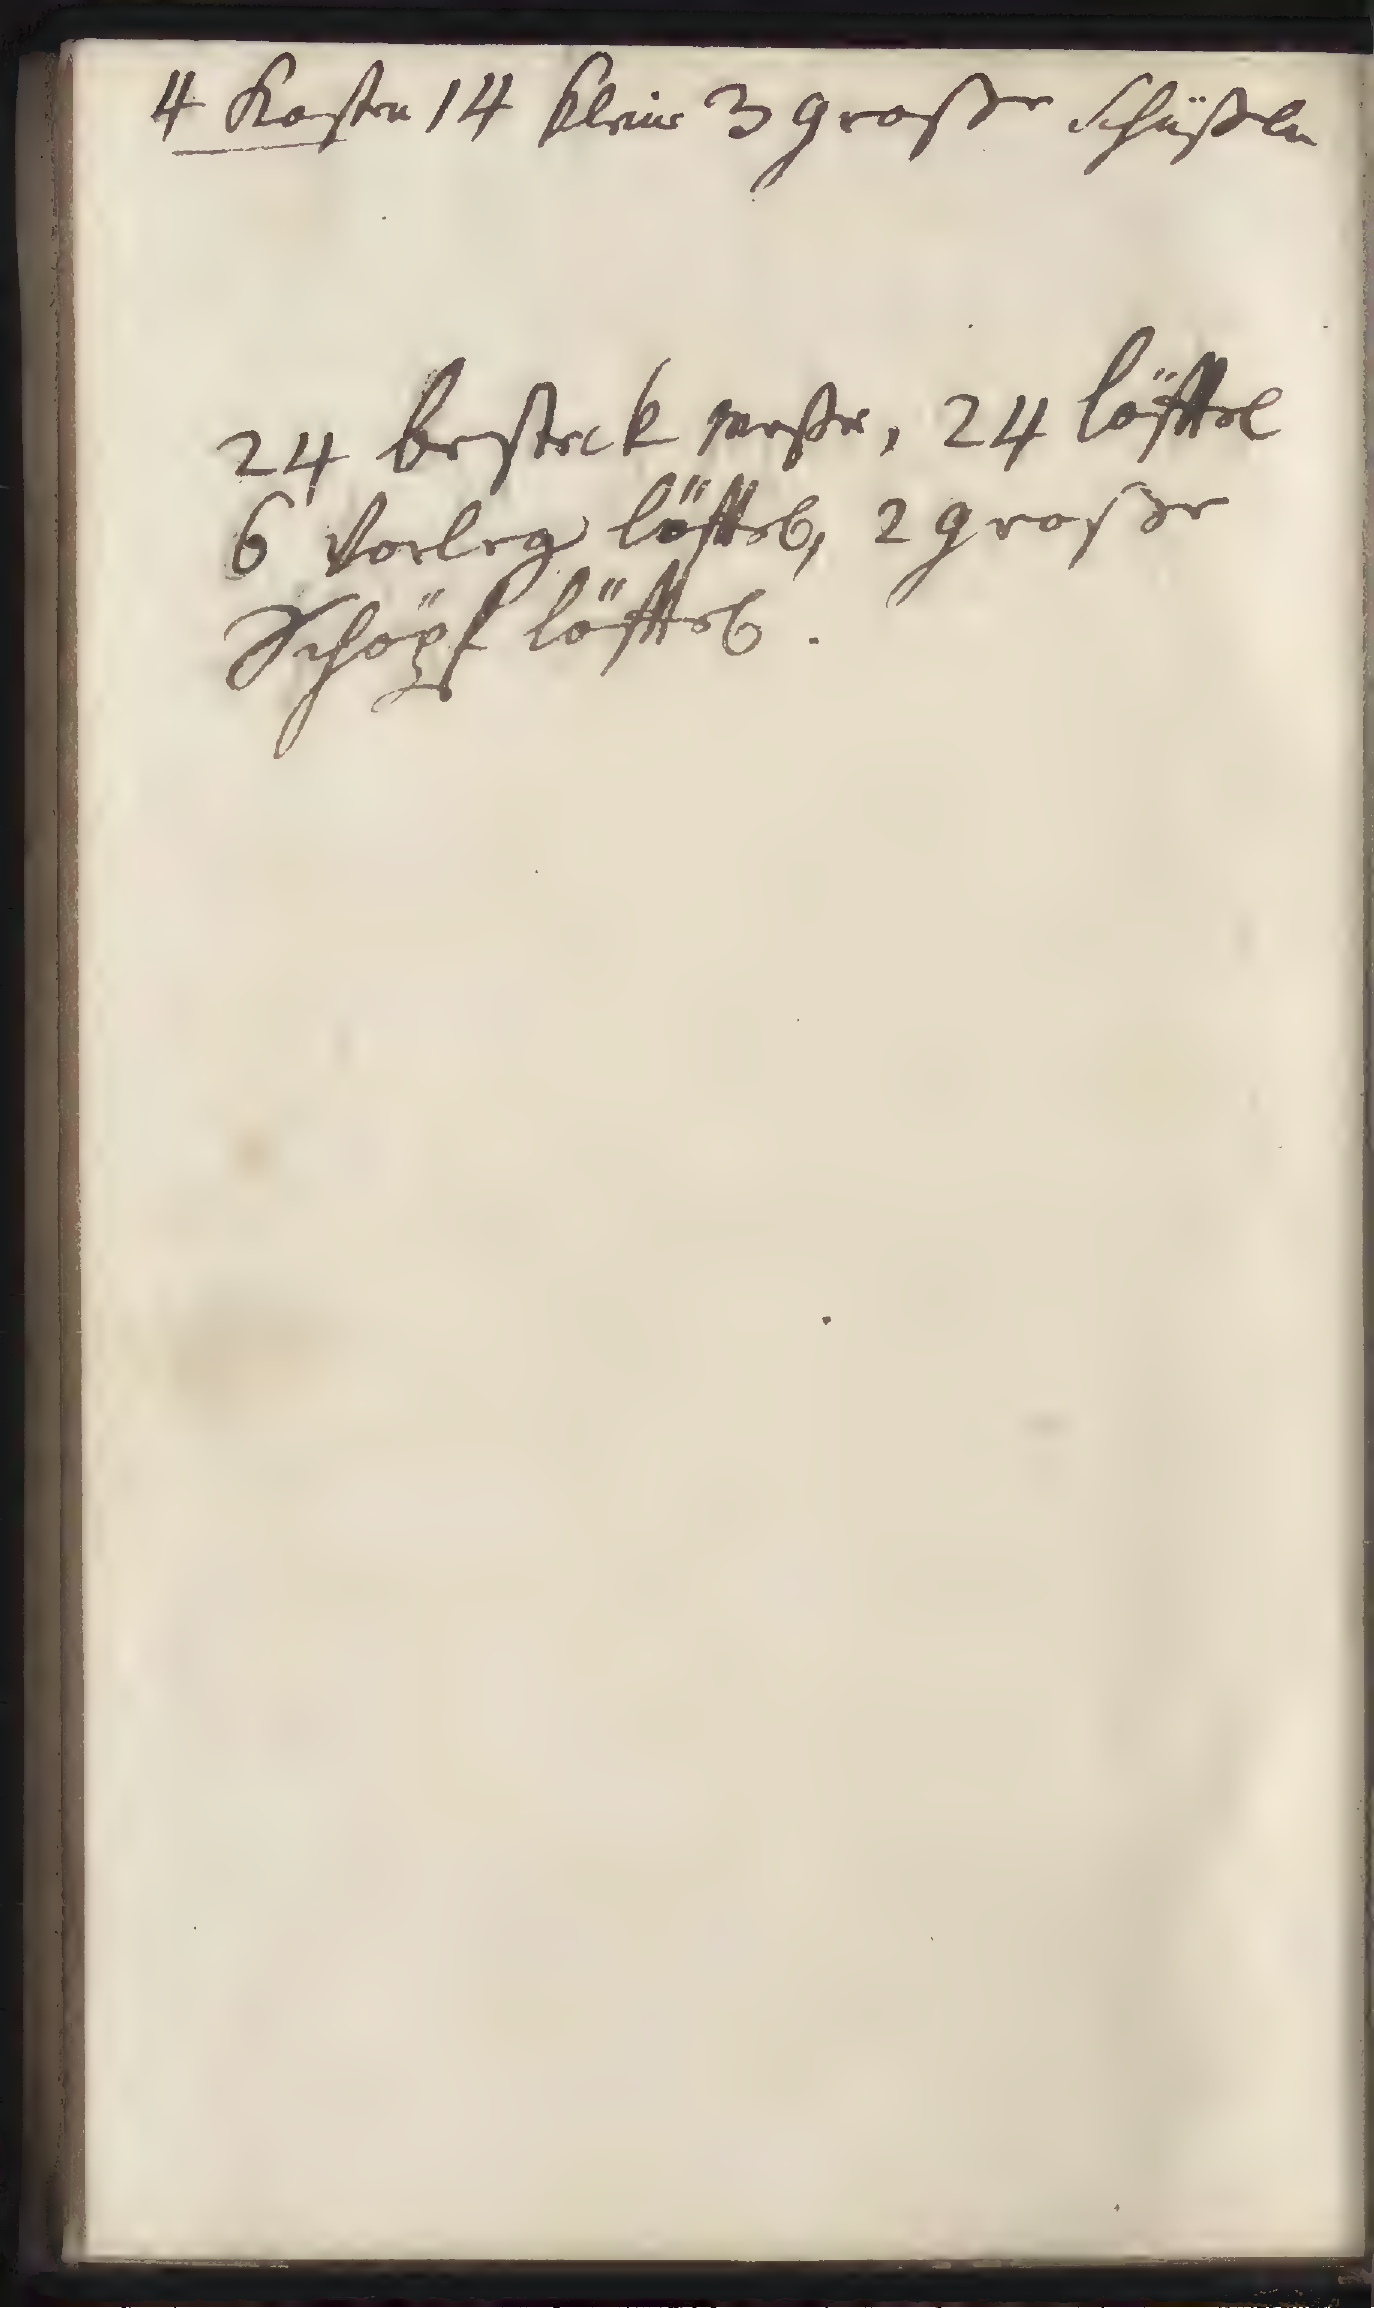 4 Kasten 14 kleine 3 große Schüßeln
24 besteck meßer, 24 löffel
6 Vorleg löffel, 2 große
Schöpf löffel.